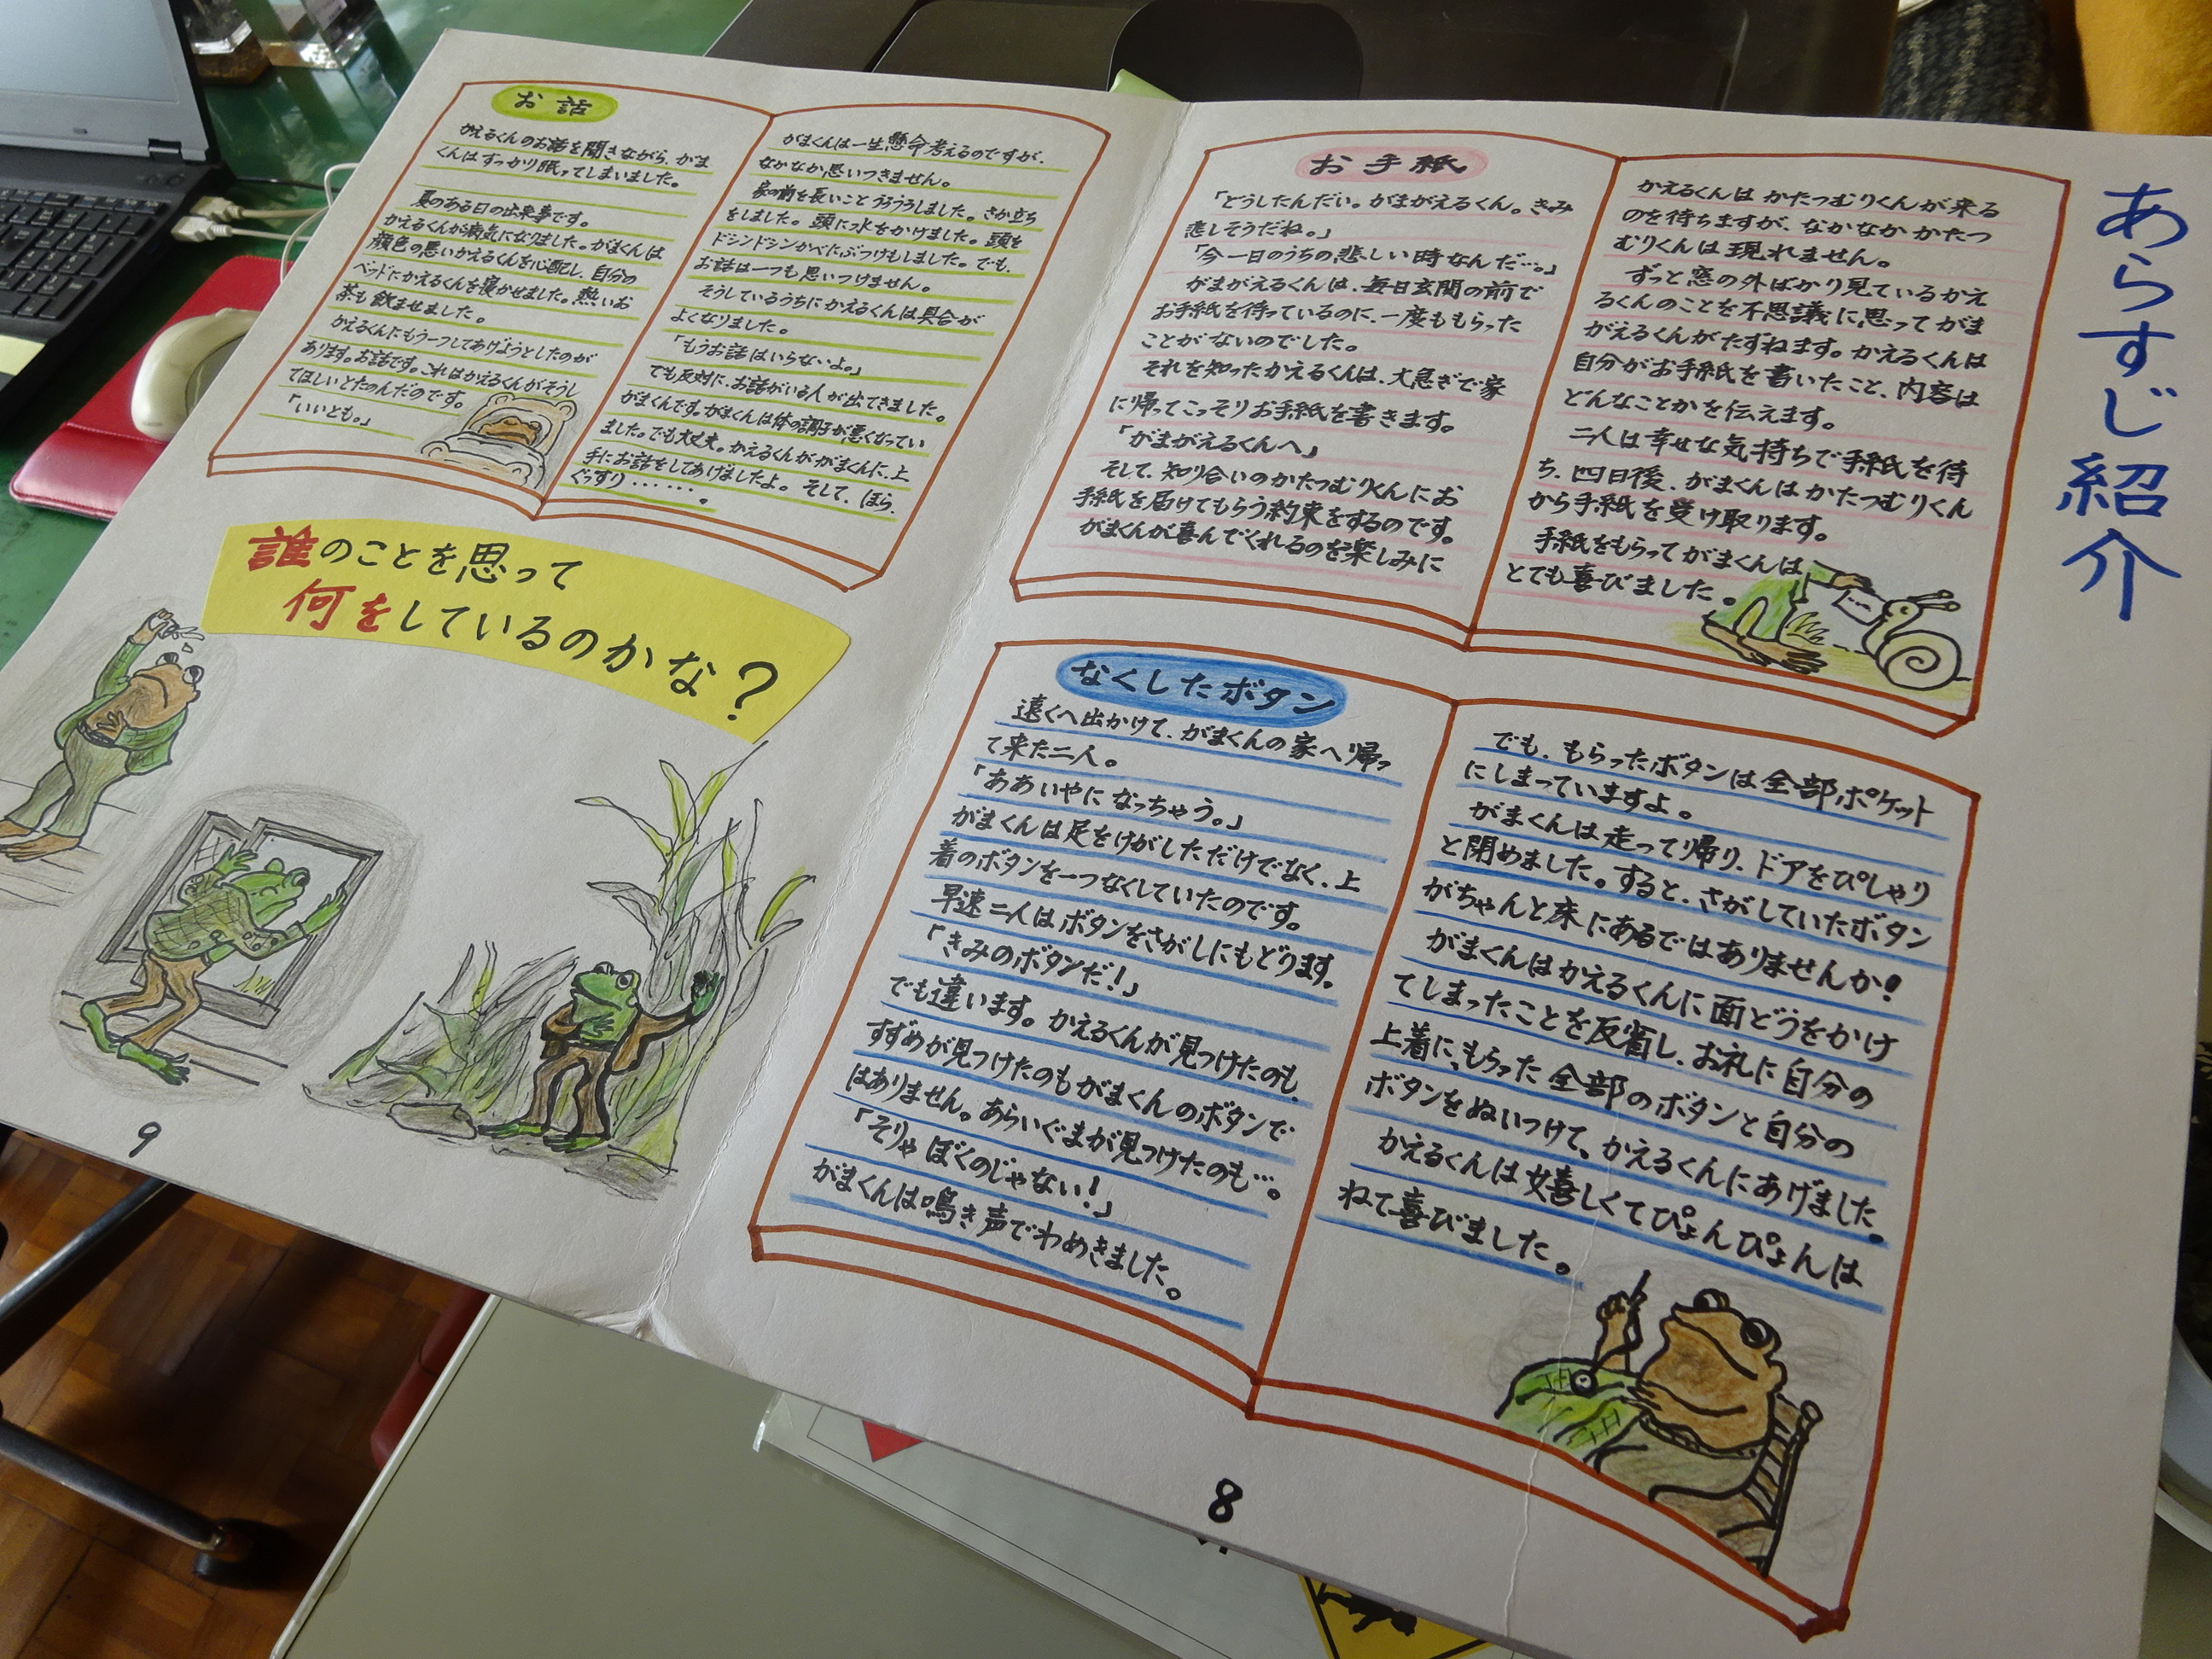 あらすじ紹介
お手紙
「どうしたんだい。がまがえるくん。きみ
悲しそうだね。」
「今一日のうちの悲しい時なんだ…。」
がまがえるくんは、毎日玄関の前で
お手紙を待っているのに、一度ももらった
ことがないのでした。
それを知ったかえるくんは、大急ぎで家
に帰ってこっそりお手紙を書きます。
「がまがえるくんへ」
そして、知り合いのかたつむりくんにお
手紙を届けてもらう約束をするのです。
がまくんが喜んでくれるのを楽しみに
かえるくんは かたつむりくんが来る
のを待ちますが、なかなか かたつ
むりくんは現れません。
ずっと窓の外ばかり見ているかえ
るくんのことを不思議に思って がま
がえるくんがたずねます。かえるくんは
自分がお手紙を書いたこと、内容は
どんなことかを伝えます。
二人は幸せな気持ちで手紙を待
ち、四日後、がまくんは かたつむりくん
から手紙を受け取ります。
手紙をもらって がまくんは
とても喜びました。
なくしたボタン
遠くへ出かけて、がまくんの家へ帰っ
て来た二人。
「ああいやに なっちゃう。」
がまくんは足をけがしただけでなく、上
着のボタンを一つなくしていたのです。
早速二人はボタンをさがしにもどります。
「きみのボタンだ!」
でも違います。かえるくんが見つけたのも、
すずめが見つけたのもがまくんのボタンで
はありません。あらいぐまが見つけたのも…。
「そりゃ ぼくのじゃない!」
がまくんは鳴き声でわめきました。
でも、もらったボタンは全部ポケット
にしまっていますよ。
がまくんは走って帰り、ドアをぴしゃり
と閉めました。すると、さがしていたボタン
がちゃんと床にあるではありませんか!
がまくんはかえるくんに面どうをかけ
てしまったことを反省し、お礼に自分の
上着に、もらった全部のボタンと自分の
ボタンをぬいつけて、かえるくんにあげました。
かえるくんは嬉しくてぴょんぴょんは
ねて喜びました。
8
お話
かえるくんのお話を聞きながら、がま
くんはすっかり眠ってしまいました。
夏のある日の出来事です。
かえるくんが病気になりました。がまくんは
顔色の悪いかえるくんを心配し、自分の
ベッドにかえるくんを寝かせました。熱いお
茶も飲ませました。
かえるくんにもう一つしてあげようとしたのが
あります。お話です。これはかえるくんがそうし
てほしいとたのんだのです。
「いいとも。」
がまくんは一生懸命考えるのですが、
なかなか思いつきません。
家の前を長いこと うろうろしました。さか立ち
をしました。頭に水をかけました。頭を
ドシンドシンかべにぶつけもしました。でも、
お話は一つも思いつけません。
そうしているうちに かえるくんは具合が
よくなりました。
「もうお話はいらないよ。」
でも反対に、お話がいる人が出てきました。
がまくんです。がまくんは体の調子が悪くなってい
ました。でも大丈夫。かえるくんが がまくんに、上
手にお話をしてあげましたよ。そして、ほら、
ぐっすり……。
誰のことを思って
何をしているのかな?
9